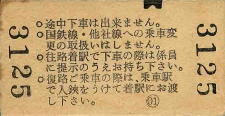 3125
○途中下車は出来ません。
○国鉄線・他社線への乗車変
更の取扱いはしません。
○往路着駅で下車の際は係員
に提示のうえお持ち下さい。
○復路ご乗車の際は、乗車駅
で入鋏をうけて着駅にお渡
し下さい。
01
3125